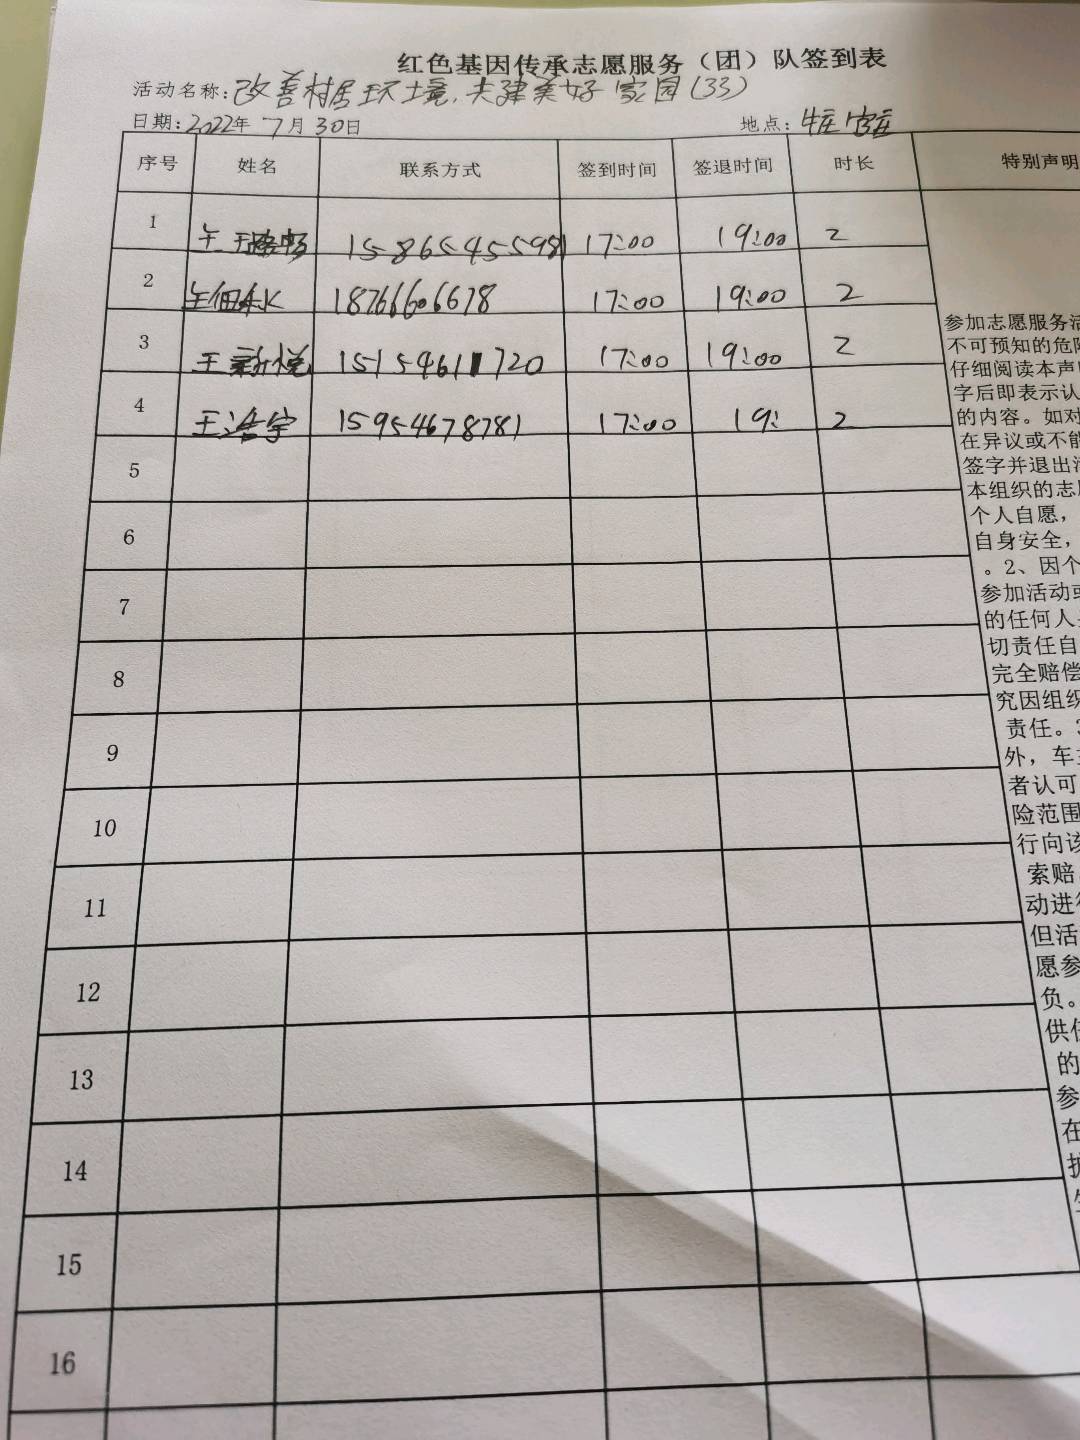 红色基因传承志愿服务（团）队签到表
活动名称：改善村居环境，共建美好家园(33)
日期：2022年 7月30日 地点：
序号 姓名 联系方式 签到时间 签退时间 时长 特别声明
1 15865455981 17:00 19:00 2
2 18766606678 17:00 19:00 2
3 王新悦 15154611720 17:00 19:00 2
4 王浩宇 15954678781 17:00 19: 2
5
6
7
8
9
10
11
12
13
14
15
16
参加志愿服务活
不可预知的危险
仔细阅读本声明
字后即表示认
的内容。如对
在异议或不能
签字并退出活
本组织的志愿
个人自愿，
自身安全，
。2、因个
参加活动或
的任何人
切责任自
完全赔偿
究因组织
责任。3
外，车主
者认可
险范围
行向该
索赔
动进行
但活
愿参
负。
供任
的
参
在